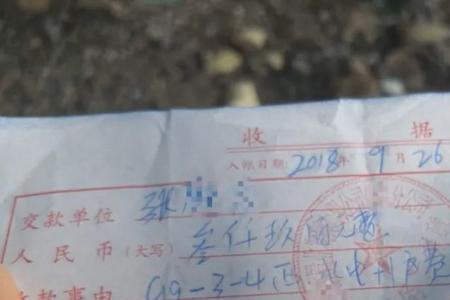 收 据
入帐日期:2018年9月26
交款单位 张
人民币(大写)叁仟玖佰元整
款事由 G9-3-4 水电开户费